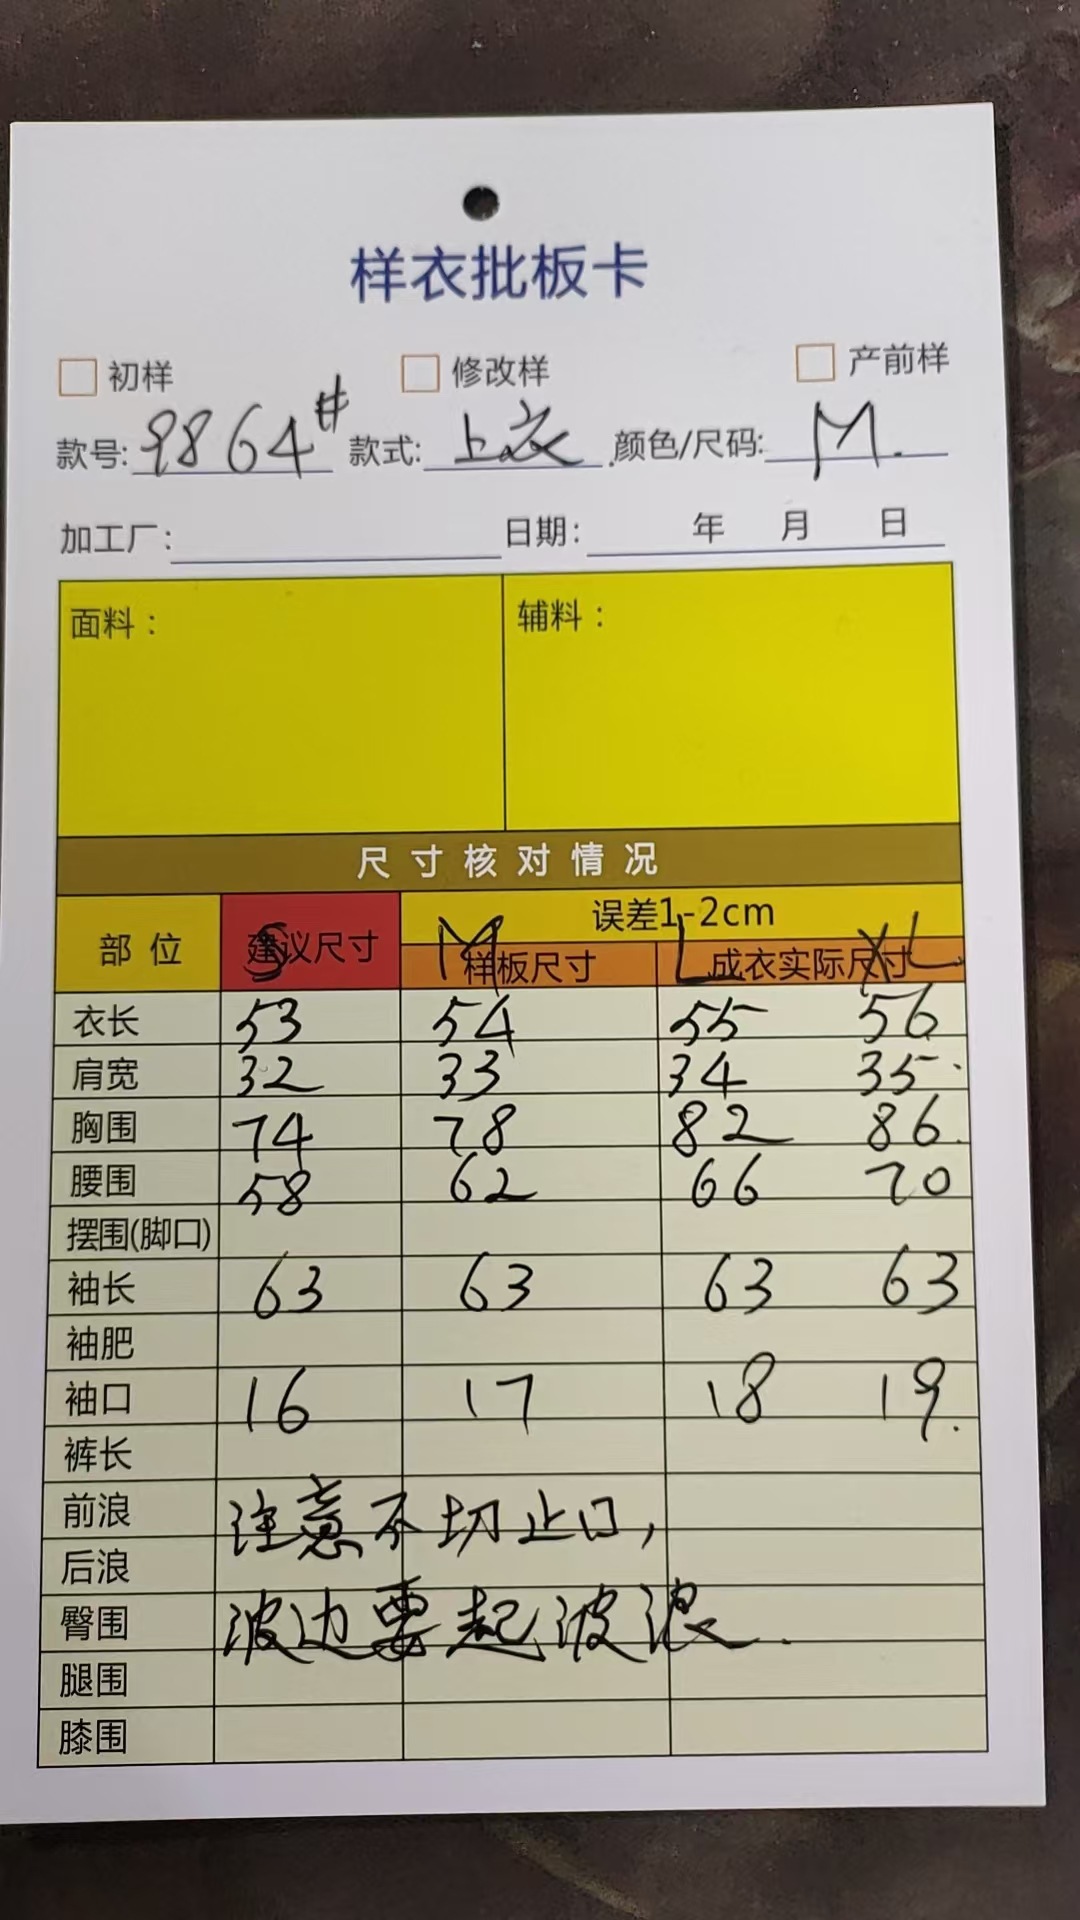 样衣批板卡
初样 修改样 产前样
款号: 9864# 款式: 上衣 颜色/尺码: M.
加工厂: 日期: 年 月 日
面料: 辅料:
尺寸核对情况
部位 建议尺寸 S 误差1-2cm
样板尺寸 M 成衣实际尺寸 L XL
衣长 53 54 55 56
肩宽 32 33 34 35.
胸围 74 78 82 86.
腰围 58 62 66 70
摆围(脚口)
袖长 63 63 63 63
袖肥
袖口 16 17 18 19.
裤长
前浪 注意不切止口,
后浪
臀围 波边要起波浪.
腿围
膝围